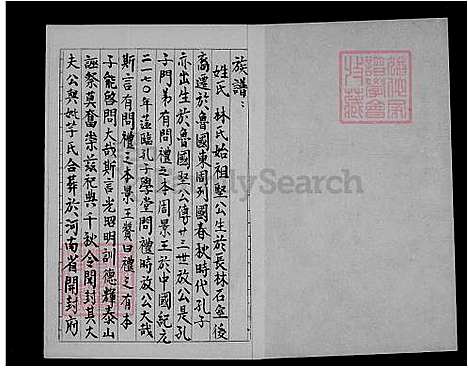 族譜：
姓氏 林氏始祖堅公生於長林石室後
裔遷於魯國東周列國春秋時代孔子
亦出生於魯國堅公傳廿三世放公是孔
子門弟有問禮之本周景王於中國紀元
二一七〇年蒞臨孔子學堂問禮時放公大哉
斯言有問禮之本景王贊曰禮之有本
子能啓問大哉斯言光昭明訓德輝泰山
誣祭莫奮崇茲祀典千秋令聞封其大
夫公與妣芋氏合葬於河南省開封府
FamilySearch